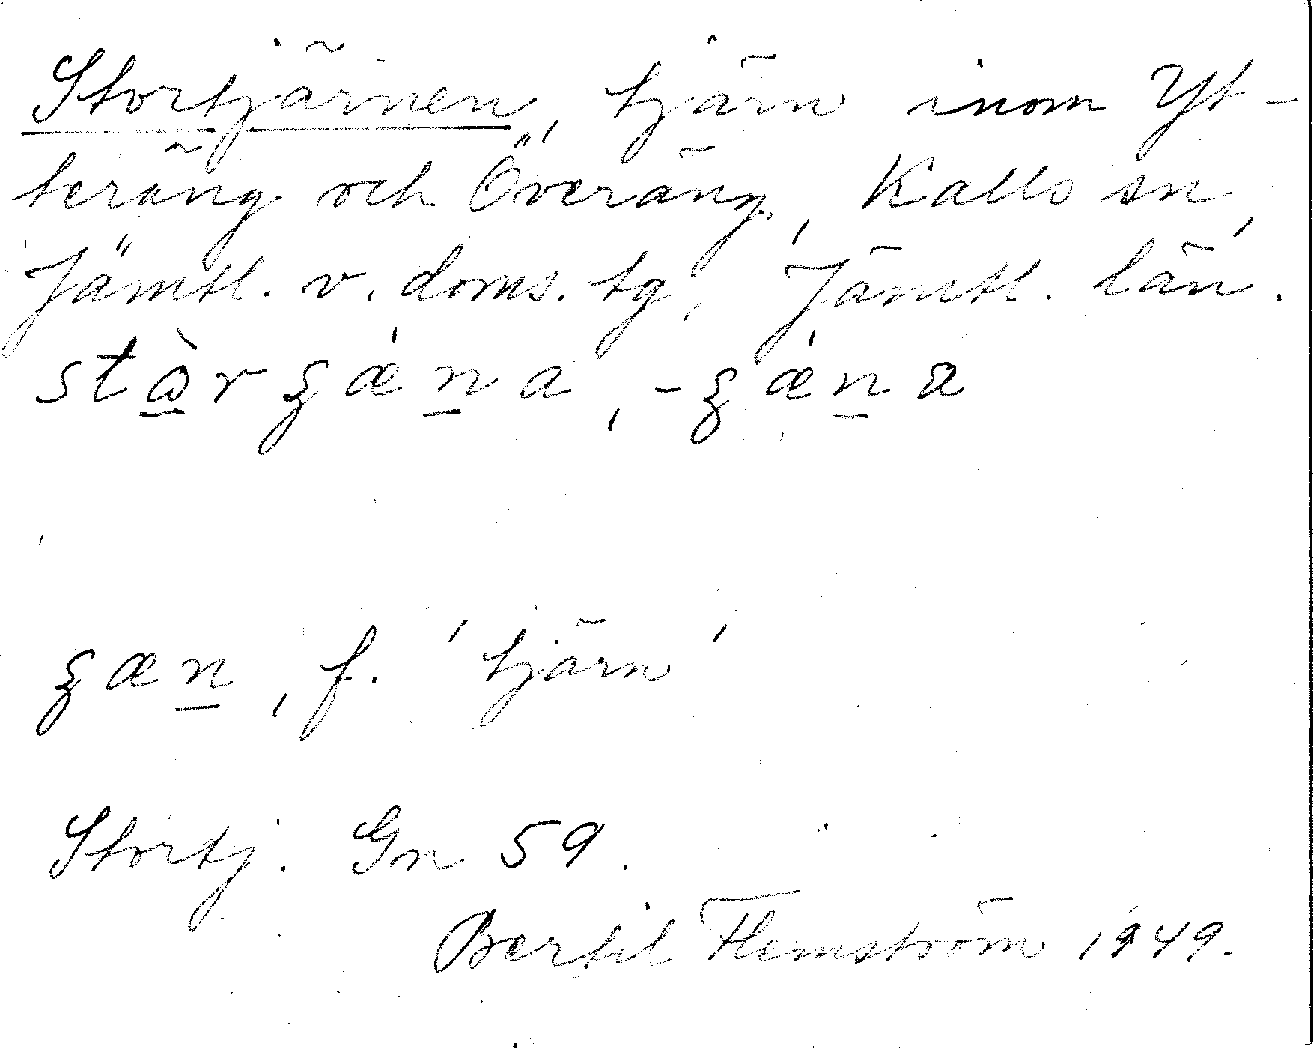 Stortjärnen, tjärn inom Yt-
teräng och Överäng, Kalls sn,
Jämtl. v. doms. tg, Jämtl. län.
, f. 'tjärn'
Stortj. Gn 59.
Bertil Flemström 1949.